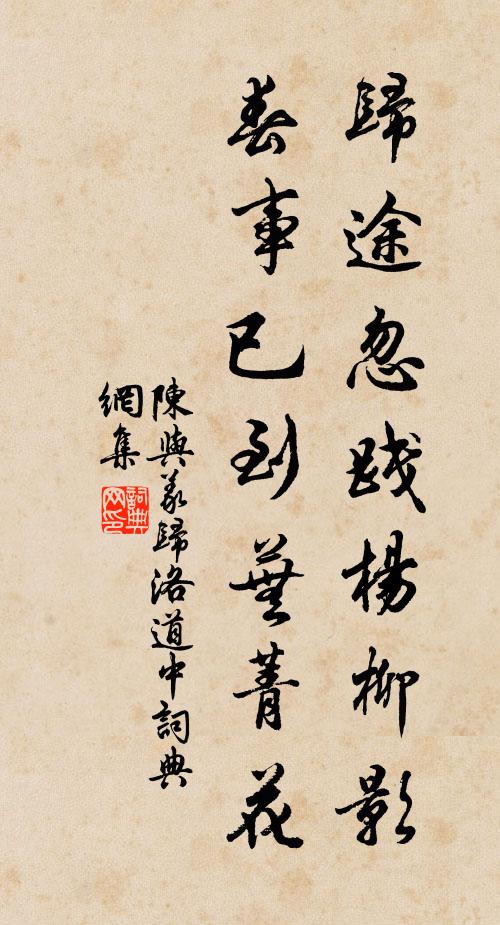 歸途忽踐楊柳影
春事已到蕪菁花
陳與義歸洛道中詞典
網集
詞典
网印